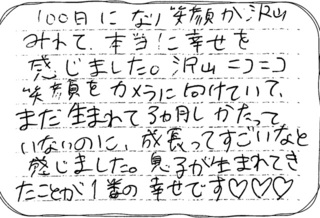 100日になり笑顔が沢山
みれて、本当に幸せを
感じました。沢山ニコニコ
笑顔をカメラに向けていて、
まだ生まれて3カ月しかたって
いないのに、成長ってすごいなと
感じました。息子が生まれてき
たことが1番の幸せです♡♡♡